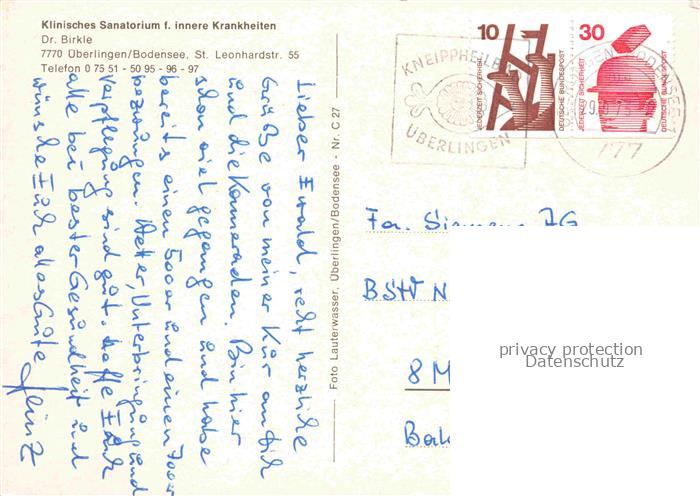 Klinisches Sanatorium f. innere Krankheiten
Dr. Birkle
7770 Überlingen/Bodensee, St. Leonhardstr. 55
Telefon 0 75 51 - 50 95 - 96 - 97
Lieber Ewald, recht herzliche
Grüße von meiner Kur an Dich
und die Kameraden. Bin hier
schon viel gegangen und habe
bereits einen 5000er und einen 7000er
bezwungen. Wetter, Unterbringung und
Verpflegung sind gut. Hoffe Euch
alle bei bester Gesundheit und
wünsche Euch alles Gute
Heinz
Foto Lauterwasser, Überlingen/Bodensee - Nr. C 27
KNEIPPHEILB
ÜBERLINGEN
10
JEDERZEIT SICHERHEIT
DEUTSCHE BUNDESPOST
30
JEDERZEIT SICHERHEIT
DEUTSCHE BUNDESPOST
777
Fa. Siemens AG
BSTV N
8 M
Bal
privacy protection
Datenschutz